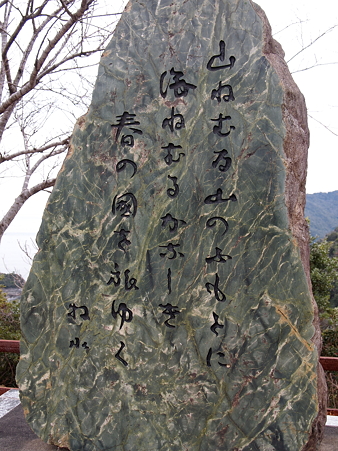 山ねむる山のふもとに
海ねむるかなしき
春の国を旅ゆく
牧水